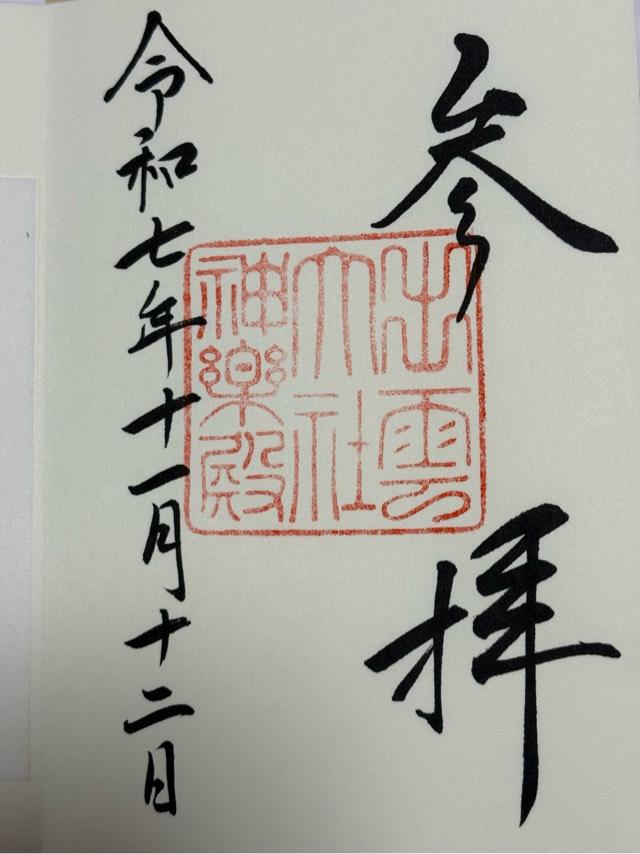 参拝
出雲
大社
神樂殿
令和七年十一月十二日